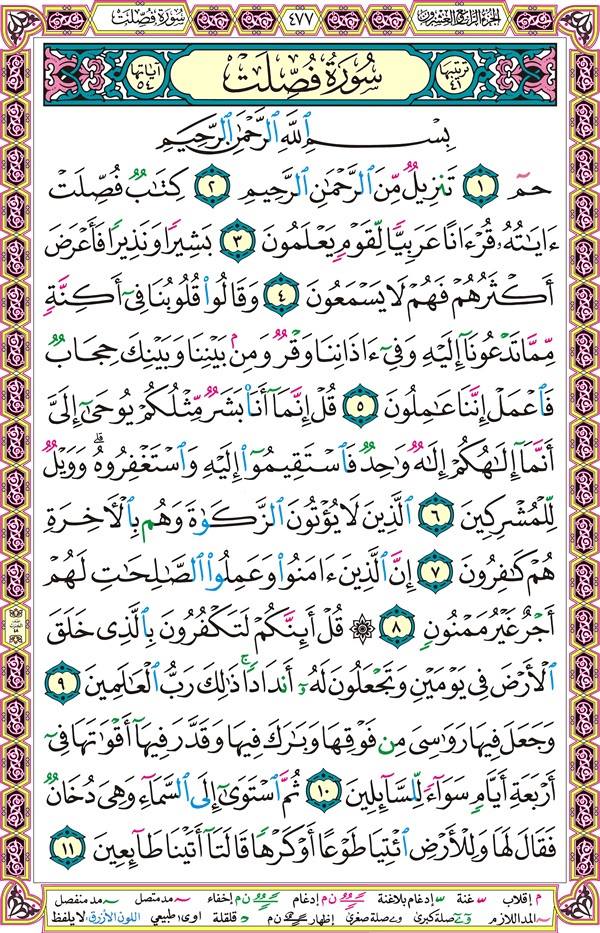 الجزء الرابع والعشرون ٤٧٧ سورة فصلت
ترتيبها ٤١ سُورَةُ فُصِّلَتْ آياتها ٥٤
بِسْمِ ٱللَّهِ ٱلرَّحْمَٰنِ ٱلرَّحِيمِ
حمٓ ١ تَنزِيلٌ مِّنَ ٱلرَّحْمَٰنِ ٱلرَّحِيمِ ٢ كِتَٰبٌ فُصِّلَتْ
ءَايَٰتُهُۥ قُرْءَانًا عَرَبِيًّا لِّقَوْمٍ يَعْلَمُونَ ٣ بَشِيرًا وَنَذِيرًا فَأَعْرَضَ
أَكْثَرُهُمْ فَهُمْ لَا يَسْمَعُونَ ٤ وَقَالُوا۟ قُلُوبُنَا فِىٓ أَكِنَّةٍ
مِّمَّا تَدْعُونَآ إِلَيْهِ وَفِىٓ ءَاذَانِنَا وَقْرٌ وَمِنۢ بَيْنِنَا وَبَيْنِكَ حِجَابٌ
فَٱعْمَلْ إِنَّنَا عَٰمِلُونَ ٥ قُلْ إِنَّمَآ أَنَا۠ بَشَرٌ مِّثْلُكُمْ يُوحَىٰٓ إِلَىَّ
أَنَّمَآ إِلَٰهُكُمْ إِلَٰهٌ وَٰحِدٌ فَٱسْتَقِيمُوٓا۟ إِلَيْهِ وَٱسْتَغْفِرُوهُ ۗ وَوَيْلٌ
لِّلْمُشْرِكِينَ ٦ ٱلَّذِينَ لَا يُؤْتُونَ ٱلزَّكَوٰةَ وَهُم بِٱلْءَاخِرَةِ
هُمْ كَٰفِرُونَ ٧ إِنَّ ٱلَّذِينَ ءَامَنُوا۟ وَعَمِلُوا۟ ٱلصَّٰلِحَٰتِ لَهُمْ
أَجْرٌ غَيْرُ مَمْنُونٍ ٨ ۞ قُلْ أَئِنَّكُمْ لَتَكْفُرُونَ بِٱلَّذِى خَلَقَ
ٱلْأَرْضَ فِى يَوْمَيْنِ وَتَجْعَلُونَ لَهُۥٓ أَندَادًا ۚ ذَٰلِكَ رَبُّ ٱلْعَٰلَمِينَ ٩
وَجَعَلَ فِيهَا رَوَٰسِىَ مِن فَوْقِهَا وَبَٰرَكَ فِيهَا وَقَدَّرَ فِيهَآ أَقْوَٰتَهَا فِىٓ
أَرْبَعَةِ أَيَّامٍ سَوَآءً لِّلسَّآئِلِينَ ١٠ ثُمَّ ٱسْتَوَىٰٓ إِلَى ٱلسَّمَآءِ وَهِىَ دُخَانٌ
فَقَالَ لَهَا وَلِلْأَرْضِ ٱئْتِيَا طَوْعًا أَوْ كَرْهًا قَالَتَآ أَتَيْنَا طَآئِعِينَ ١١
م إقلاب غنة إدغام بلاغنة ن م إدغام ن م إخفاء مد متصل مد منفصل
المد اللازم صلة كبرى صلة صغرى إظهار ن م قلقلة اوى: طبيعي اللون الأزرق: لا يلفظ